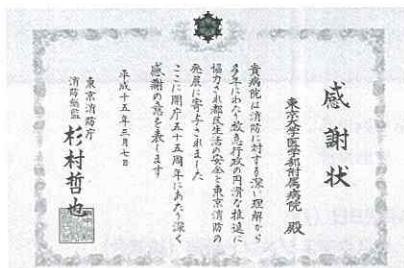 感謝状
東京大学医学部附属病院 殿
貴病院は消防に対する深い理解から
多年にわたり救急行政の円滑な推進に
協力され都民生活の安全と東京消防の
発展に寄与されました
ここに開庁五十五周年にあたり深く
感謝の意を表します
平成十五年三月七日
東京消防庁
消防総監 杉村哲也